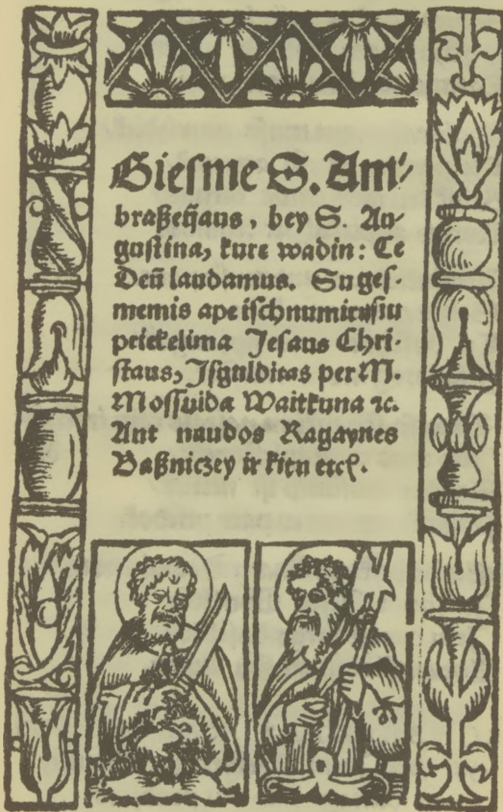 Giesme S. Am⸗
braßeijaus, bey S. Au⸗
gustina, kure wadin: Te
Deū laudamus. Su ges⸗
memis ape ischnumirusiu
prickelima Jesaus Chri⸗
staus, Isgulditas per M.
Mossuida Waitkuna ⁊c.
Ant naudos Ragaynes
Baßniczey ir kitu etc.